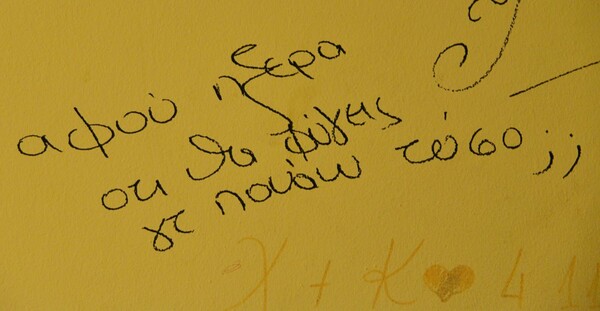 αφού ηξερα
οτι θα φύγεις
γτ πονάω τόσο ;;
X + K 4